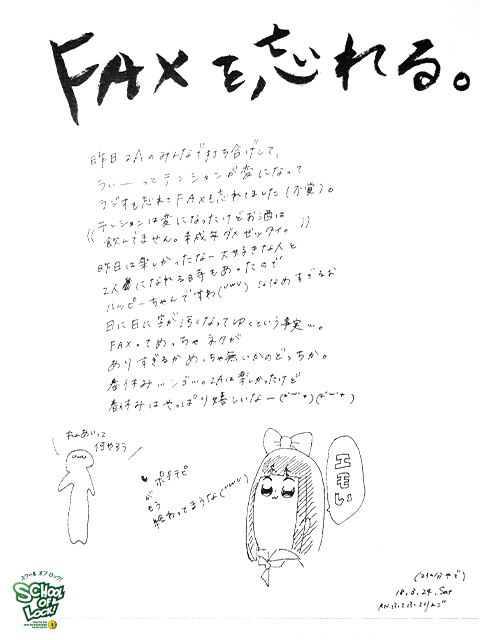 FAXを、忘れる。
昨日2Aのみんなで打ち合げして、
うぃーってテンションが変になって
ラジオも忘れてFAXも忘れてました(不覚)。
((テーションは変になったけどお酒は
飲んでません。未成年ダメゼッタイ。))
昨日は楽しかったなー大好きな人と
2人になれる時もあったので
ハッピーちゃんですわ(˘ω˘) ななめすぎるお
日に日に字が汚くなってゆくという事実…。
FAXってめっちゃネタが
ありすぎるかめっちゃ無いかのどっちか。
春休み…ンゴ…。2Aは楽しかったけど
春休みはやっぱり嬉しいなー
れんあいって
何やろう
ポプテピ
がもう
終わってまうな(˘ω˘)
エモい
18.3.24. Sat
RN ふてふてりんご
スクール オブ ロック!
SCHOOL
OF
LOCK!